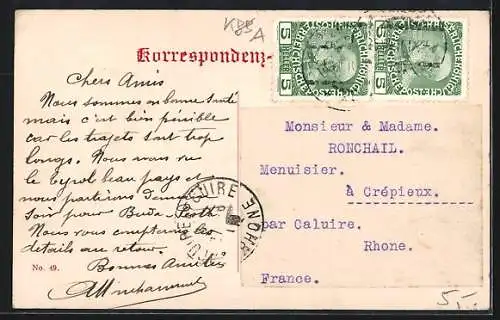 K85
A
Korrespondenz-
5 HELLER 5
5 HELLER 5
Chers Amis
Nous sommes en bonne santé
mais c'est bien pénible
car les trajets sont trop
longs. Nous avons vu
le Tyrol beau pays et
nous partirons
soir pour Buda Pesth
Nous vous compterons les
details au retour.
Bonnes Amitiés
No. 49.
Monsieur & Madame.
RONCHAIL.
Menuisier.
à Crépieux.
par Caluire.
Rhone.
France.
CUIRE
RHONE
5,-